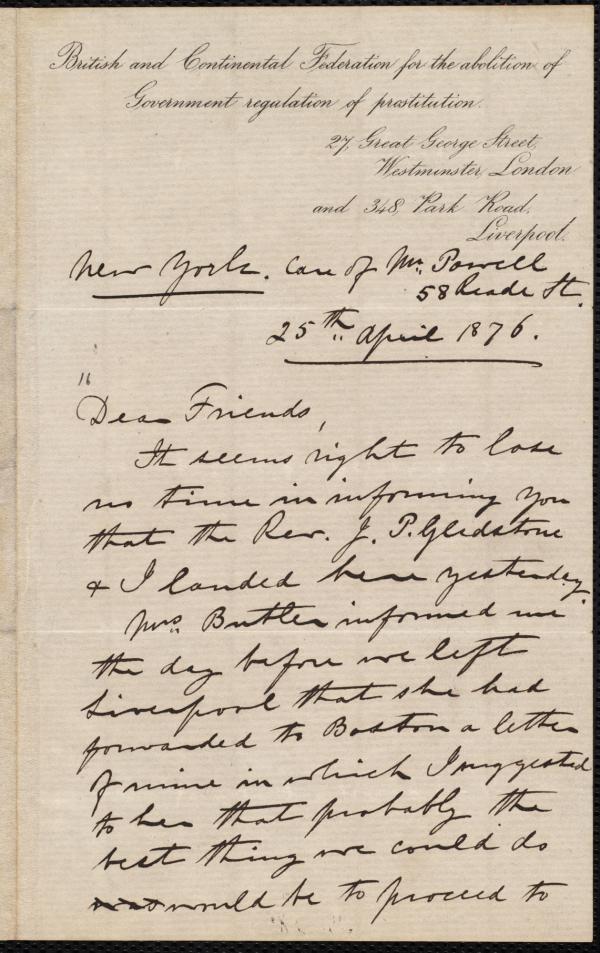 British and Continental Federation for the abolition of
Government regulation of prostitution.
27, Great George Street,
Westminster, London
and 348, Park Road,
Liverpool.
New York. Care of Mr. Powell
58 Reade St.
25th April 1876.
16
Dear Friends,
It seems right to lose
no time in informing you
that the Rev. J. P. Gledstone
& I landed here yesterday.
Mrs. Butler informed me
the day before we left
Liverpool that she had
forwarded to Boston a letter
of mine in which I suggested
to her that probably the
best thing we could do
was would be to proceed to